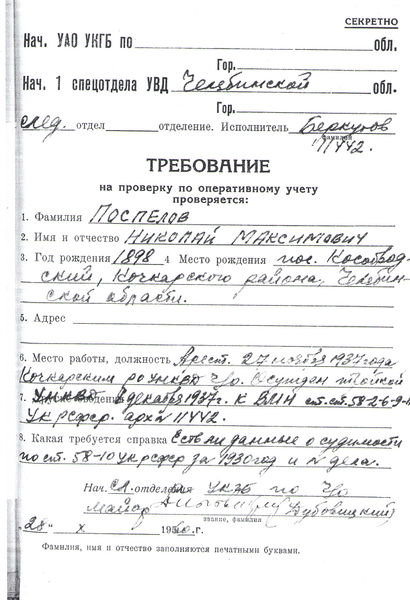 СЕКРЕТНО
Нач. УАО УКГБ по обл.
Гор.
Нач. 1 спецотдела УВД Челябинской обл.
Гор.
след. отдел отделение. Исполнитель Беркутов
фамилия
11442.
ТРЕБОВАНИЕ
на проверку по оперативному учету
проверяется:
1. Фамилия ПОСПЕЛОВ
2. Имя и отчество НИКОЛАЙ МАКСИМОВИЧ
3. Год рождения 1898 4 Место рождения пос. Кособрод-
ский, Кочкарского района, Челябин-
ской области.
5. Адрес
6. Место работы, должность Арест. 27 ноября 1937 года
Кочкарским РО УНКВД Ч/о. Осужден тройкой
7. УНКВД декабря 1937г. к ВМН ст.ст. 58-2-6-9-
УК РСФСР. арх 11442.
8. Какая требуется справка Есть ли данные о судимости
по ст. 58-10 УК РСФСР за 1930 год и № дела.
Нач. отделения УКГБ по Ч/о
майор (Дубовицкий)
звание, фамилия
"28" X 195 г.
Фамилия, имя и отчество заполняются печатными буквами.